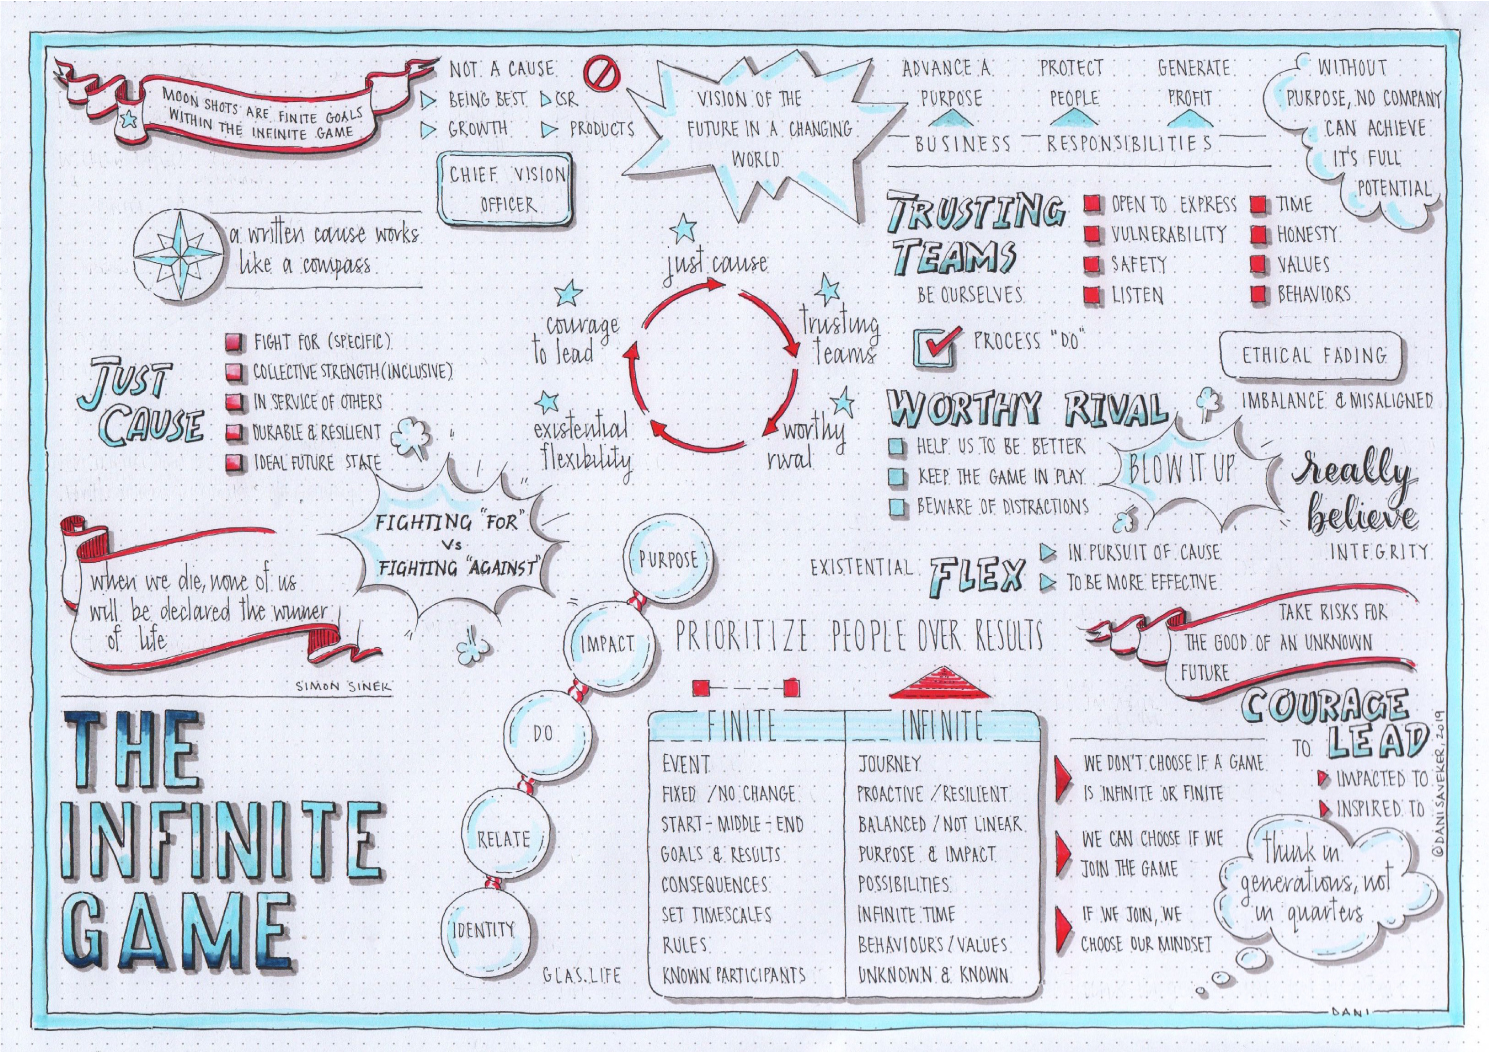 MOON SHOTS ARE FINITE GOALS
WITHIN THE INFINITE GAME
NOT A CAUSE
BEING BEST
CSR
GROWTH
PRODUCTS
CHIEF VISION
OFFICER
VISION OF THE
FUTURE IN A CHANGING
WORLD
ADVANCE A
PURPOSE
PROTECT
PEOPLE
GENERATE
PROFIT
BUSINESS RESPONSIBILITIES
WITHOUT
PURPOSE, NO COMPANY
CAN ACHIEVE
IT'S FULL
POTENTIAL
a written cause works
like a compass
JUST
CAUSE
FIGHT FOR (SPECIFIC)
COLLECTIVE STRENGTH (INCLUSIVE)
IN SERVICE OF OTHERS
DURABLE & RESILIENT
IDEAL FUTURE STATE
just cause
trusting
teams
worthy
rival
existential
flexibility
courage
to lead
TRUSTING
TEAMS
BE OURSELVES
OPEN TO EXPRESS
VULNERABILITY
SAFETY
LISTEN
TIME
HONESTY
VALUES
BEHAVIORS
PROCESS "DO"
ETHICAL FADING
IMBALANCE & MISALIGNED
WORTHY RIVAL
HELP US TO BE BETTER
KEEP THE GAME IN PLAY
BEWARE OF DISTRACTIONS
BLOW IT UP
really
believe
INTEGRITY
FIGHTING "FOR"
Vs
FIGHTING "AGAINST"
when we die, none of us
will be declared the winner
of life
SIMON SINEK
EXISTENTIAL
FLEX
IN PURSUIT OF CAUSE
TO BE MORE EFFECTIVE
TAKE RISKS FOR
THE GOOD OF AN UNKNOWN
FUTURE
PURPOSE
IMPACT
DO
RELATE
IDENTITY
GLAS.LIFE
PRIORITIZE PEOPLE OVER RESULTS
FINITE
INFINITE
EVENT
JOURNEY
FIXED / NO CHANGE
PROACTIVE / RESILIENT
START - MIDDLE - END
BALANCED / NOT LINEAR
GOALS & RESULTS
PURPOSE & IMPACT
CONSEQUENCES
POSSIBILITIES
SET TIMESCALES
INFINITE TIME
RULES
BEHAVIOURS / VALUES
KNOWN PARTICIPANTS
UNKNOWN & KNOWN
COURAGE
TO LEAD
IMPACTED TO
INSPIRED TO
WE DON'T CHOOSE IF A GAME
IS INFINITE OR FINITE
WE CAN CHOOSE IF WE
JOIN THE GAME
IF WE JOIN, WE
CHOOSE OUR MINDSET
think in
generations, not
in quarters
THE
INFINITE
GAME
©DANI SAVEKER, 2019
DANI